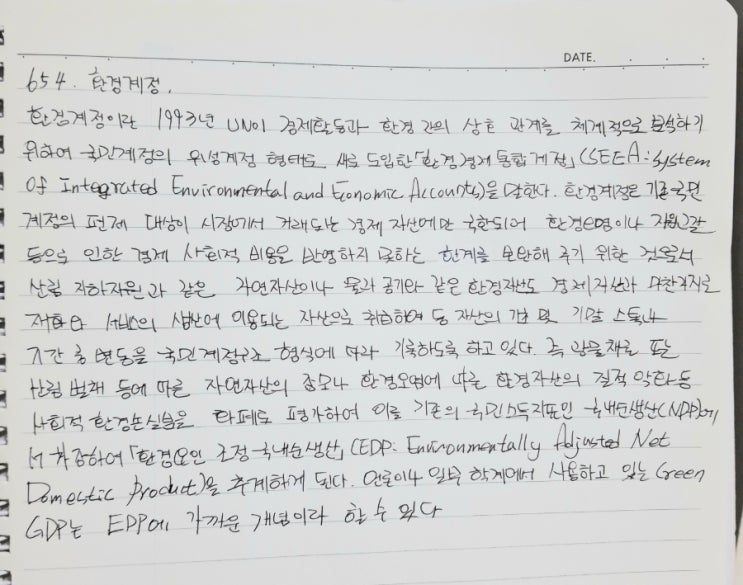 DATE.
654. 환경계정.
환경계정이란 1993년 UN이 경제활동과 환경 간의 상호 관계를 체계적으로 분석하기
위하여 국민계정의 위성계정 형태로 새로 도입한「환경경제통합계정」(SEEA: System
Of Integrated Environmental and Economic Accounts)을 말한다. 환경계정은 기존 국민
계정의 편제 대상이 시장에서 거래되는 경제 자산에만 국한되어 환경오염이나 자원고갈
등으로 인한 경제 사회적 비용을 반영하지 못하는 한계를 보완해 주기 위한 것으로서
산림 지하자원과 같은 자연자산이나 물과 공기와 같은 환경자산도 경제자산과 마찬가지로
재화와 서비스의 생산에 이용되는 자산으로 취급하여 동 자산의 기초 및 기말 스톡과
기간 중 변동을 국민계정 형식에 따라 기록하도록 하고 있다. 즉 광물채굴 또는
산림 벌채 등에 따른 자연자산의 감모나 환경오염에 따른 환경자산의 질적 악화 등
사회적 환경손실을 화폐로 평가하여 이를 기존의 국민소득지표인 국내순생산(NDP)에
서 차감하여「환경요인 조정 국내순생산」(EDP: Environmentally Adjusted Net
Domestic Product)을 추계하게 된다. 언론이나 일부 학계에서 사용하고 있는 Green
GDP는 EDP에 가까운 개념이라 할 수 있다